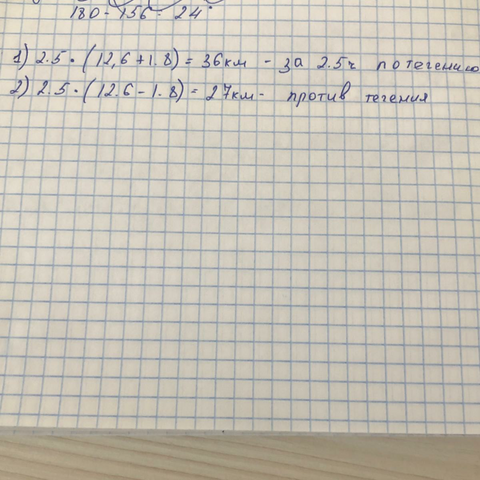 180 - 156 = 24°
1) 2.5 · (12,6 + 1.8) = 36км - за 2.5ч по тегению
2) 2.5 · (12.6 - 1.8) = 27км - против тегения